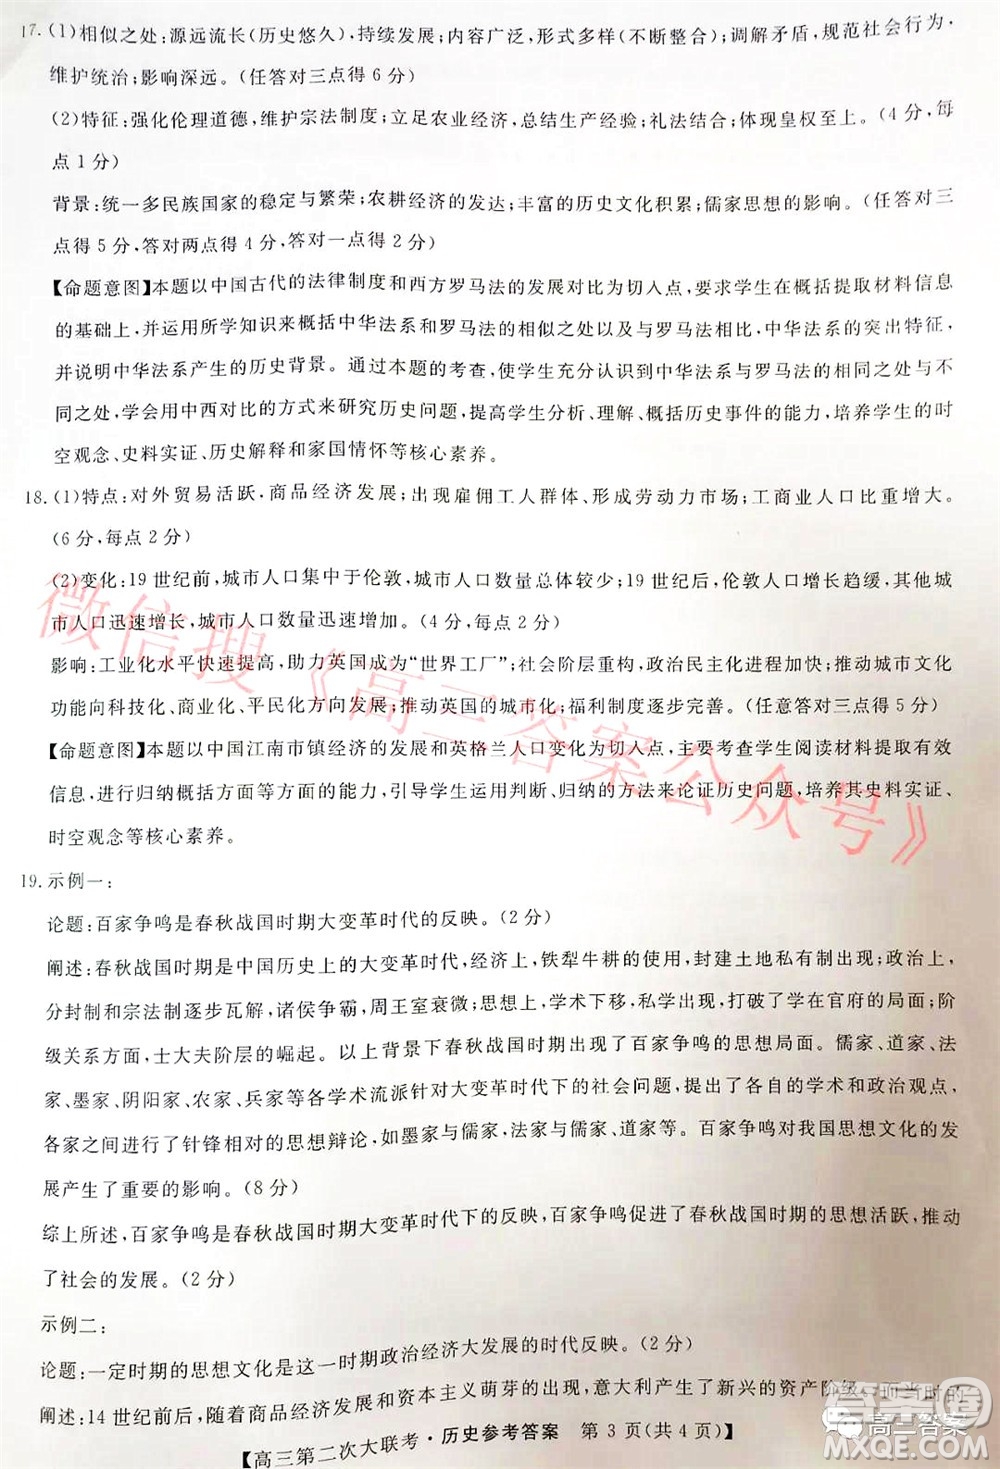 17.(1)相似之处:源远流长(历史悠久),持续发展;内容广泛,形式多样(不断整合);调解矛盾,规范社会行为,
维护统治;影响深远。(任答对三点得6分)
(2)特征:强化伦理道德,维护宗法制度;立足农业经济,总结生产经验;礼法结合;体现皇权至上。(4分,每
点1分)
背景:统一多民族国家的稳定与繁荣;农耕经济的发达;丰富的历史文化积累;儒家思想的影响。(任答对三
点得5分,答对两点得4分,答对一点得2分)
【命题意图】本题以中国古代的法律制度和西方罗马法的发展对比为切入点,要求学生在概括提取材料信息
的基础上,并运用所学知识来概括中华法系和罗马法的相似之处以及与罗马法相比,中华法系的突出特征,
并说明中华法系产生的历史背景。通过本题的考查,使学生充分认识到中华法系与罗马法系的相同之处与
不同之处,学会用中西对比的方式来研究历史问题,提高学生分析、理解、概括历史事件的能力,培养学生的时
空观念、史料实证、历史解释和家国情怀等核心素养。
18.(1)特点:对外贸易活跃,商品经济发展;出现雇佣工人群体、形成劳动力市场;工商业人口比重增大。
(6分,每点2分)
(2)变化:19世纪前,城市人口集中于伦敦,城市人口数量总体较少;19世纪后,伦敦人口增长趋缓,其他城
市人口迅速增长,城市人口数量迅速增加。(4分,每点2分)
影响:工业化水平快速提高,助力英国成为“世界工厂”;社会阶层重构,政治民主化进程加快;推动城市文化
功能向科技化、商业化、平民化方向发展;推动英国的城市化;福利制度逐步完善。(任意答对三点得5分)
【命题意图】本题以中国江南市镇经济的发展和英格兰人口变化为切入点,主要考查学生阅读材料提取有效
信息,进行归纳概括方面等方面的能力,引导学生运用判断、归纳的方法来论证历史问题,培养其史料实证、
时空观念等核心素养。
19.示例一:
论题:百家争鸣是春秋战国时期大变革时代的反映。(2分)
阐述:春秋战国时期是中国历史上的大变革时代,经济上,铁犁牛耕的使用,封建土地私有制出现;政治上,
分封制和宗法制逐步瓦解,诸侯争霸,周王室衰微;思想上,学术下移,私学出现,打破了学在官府的局面;阶
级关系方面,士大夫阶层的崛起。以上背景下春秋战国时期出现了百家争鸣的思想局面。儒家、道家、法
家、墨家、阴阳家、农家、兵家等各种学术流派针对大变革时代下的社会问题,提出了各自的学术和政治观点,
各家之间进行了针锋相对的思想辩论,如墨家与儒家,法家与儒家、道家等。百家争鸣对我国思想文化的发
展产生了重要的影响。(8分)
综上所述,百家争鸣是春秋战国时期大变革时代下的反映,百家争鸣促进了春秋战国时期的思想活跃,推动
了社会的发展。(2分)
示例二:
论题:一定时期的思想文化是这一时期政治经济大发展的时代反映。(2分)
阐述:14世纪前后,随着商品经济发展和资本主义萌芽的出现,意大利产生了新兴的资产阶级,而当时的
【高三第二次大联考·历史参考答案 第3页(共4页)】
微信搜《高三答案公众号》
高三答案
答案圈
MXQE.COM